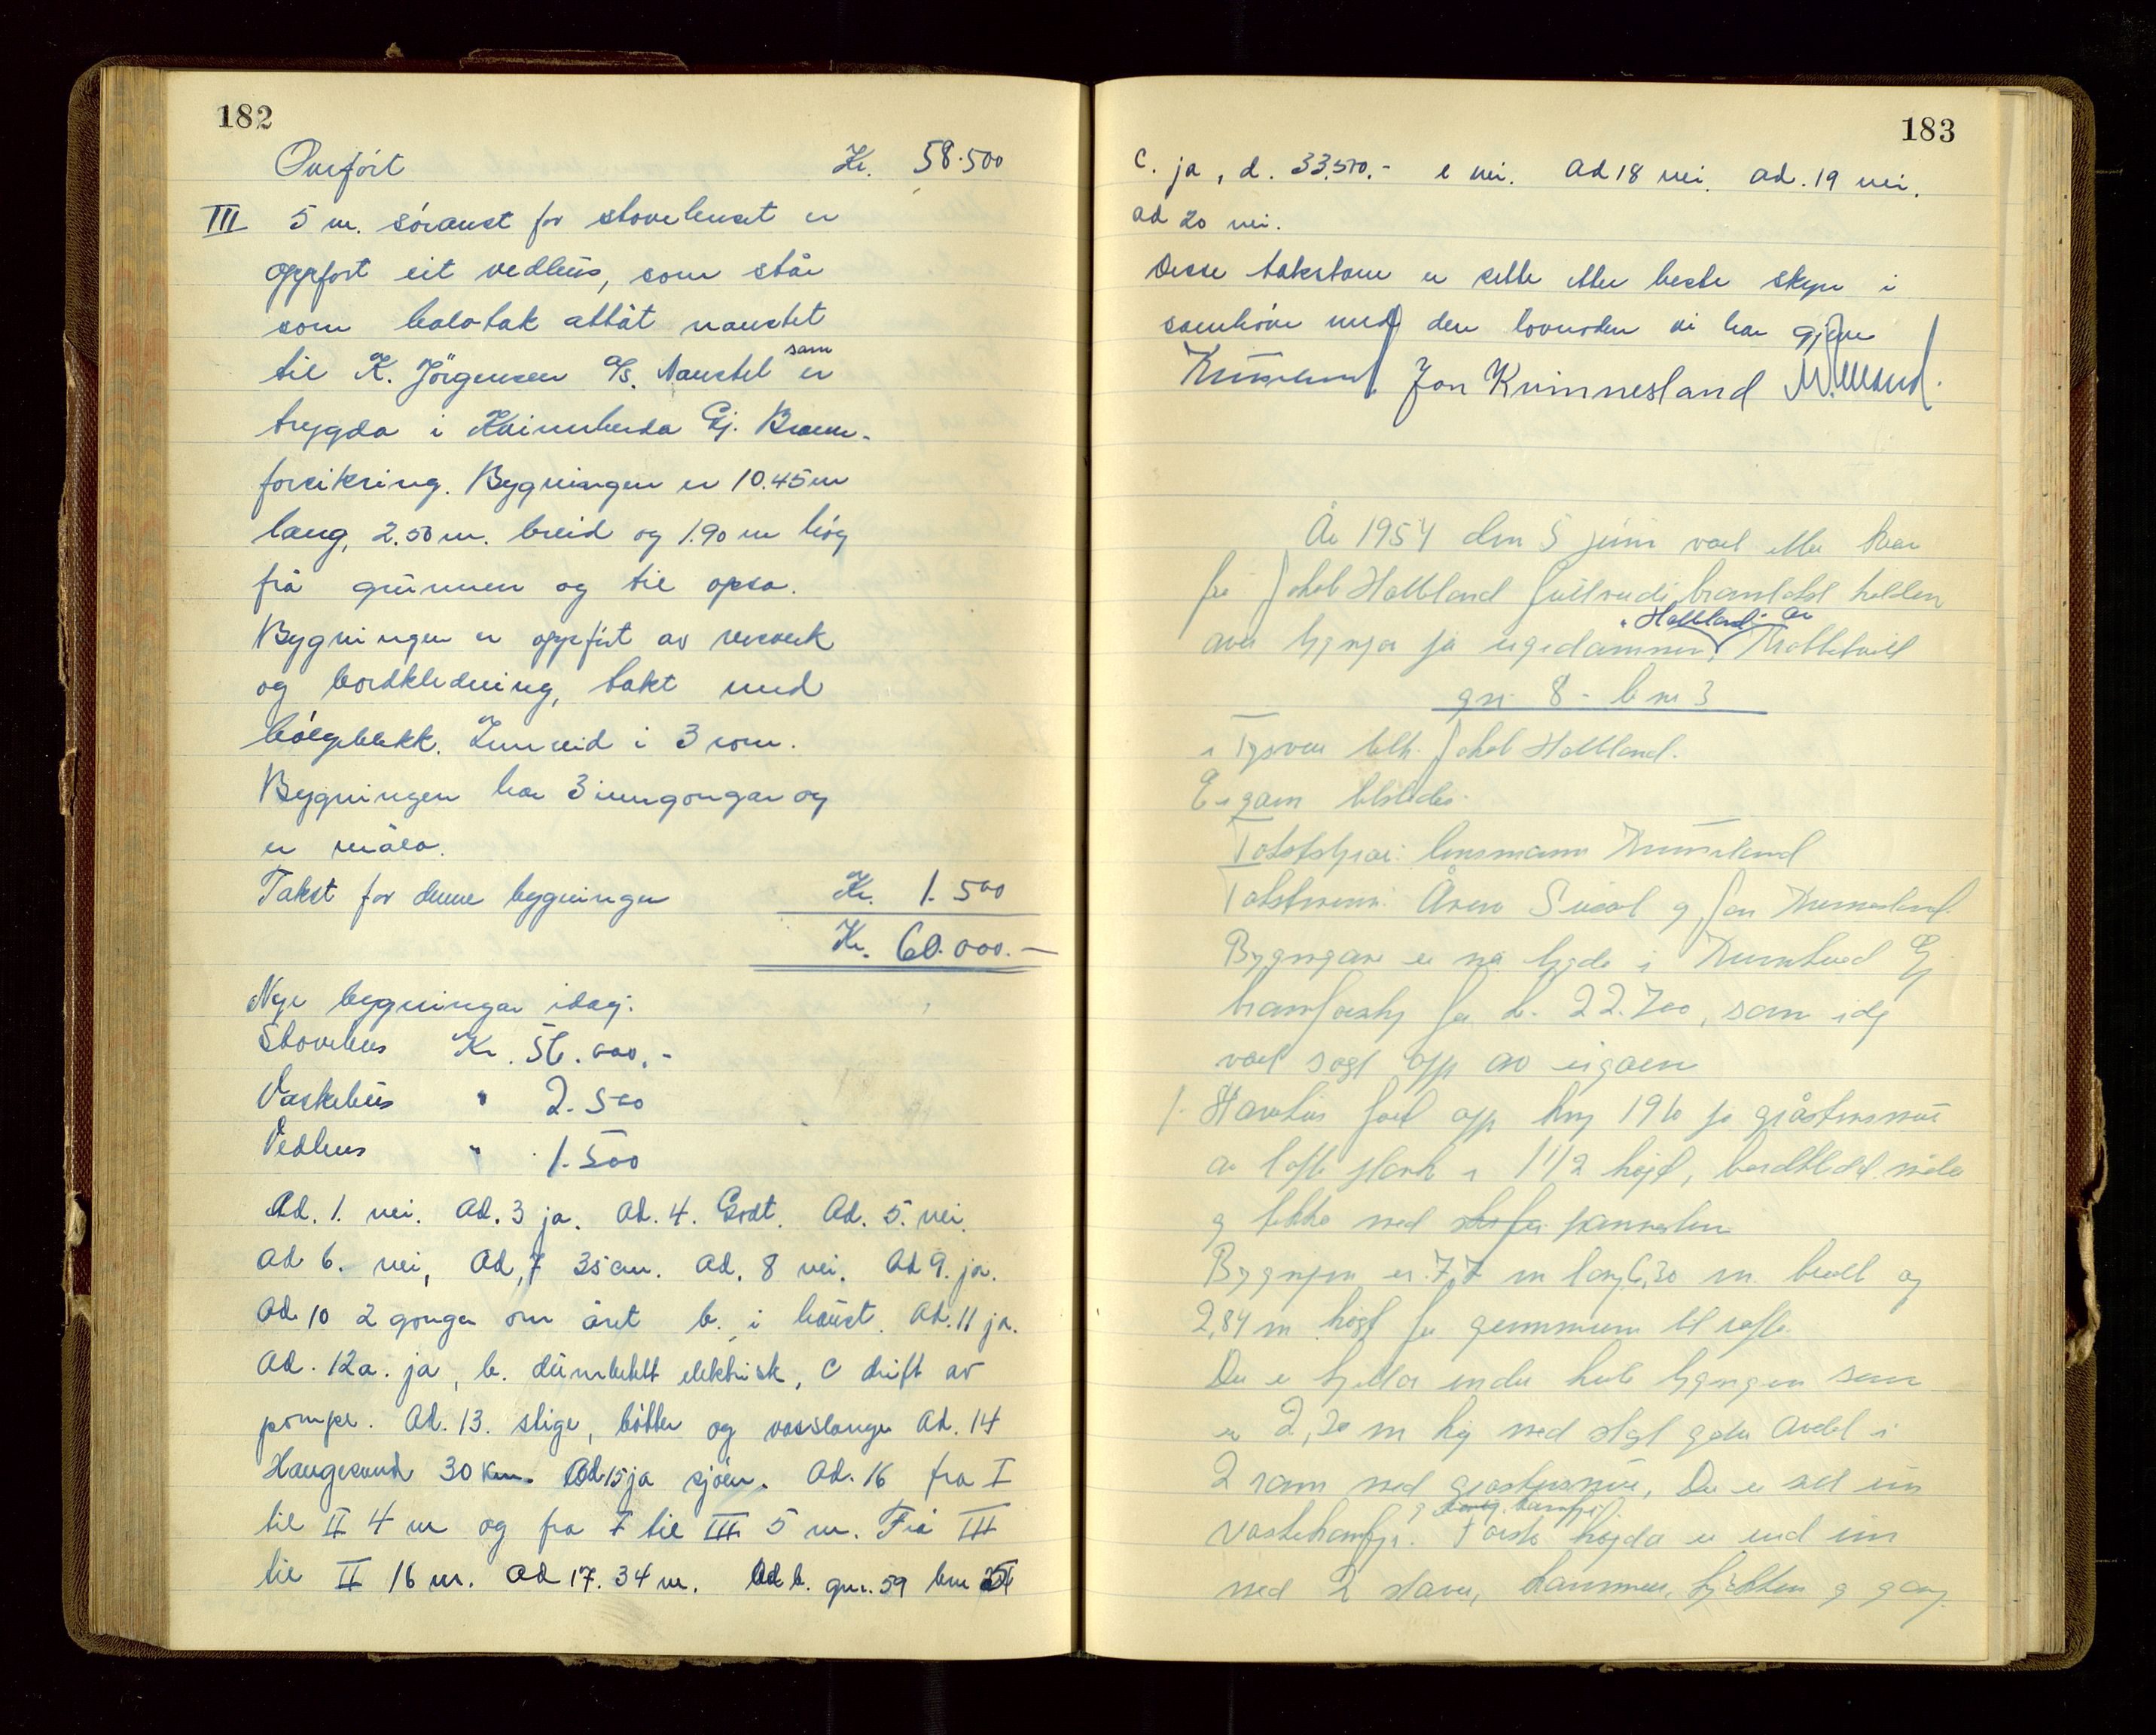 182
Overført Kr. 58.500
III 5 m. søraust for stovehuset er
oppført eit vedhus, som står
som halvtak attåt naustet
til K. Jørgensen A/S. Naustet som er
trygda i Kvinnherda Gj. Brann-
forsikring. Bygningen er 10.45 m
lang, 2.50 m. breid og 1.90 m høg
frå grunnen og til opsa.
Bygningen er oppført av reisverk
og bordkledning, takt med
bølgeblekk. Innreid i 3 rom.
Bygningen har 3 inngongar og
er måla.
Takst for denne bygningen Kr. 1.500
Kr. 60.000.-
Nye bygningar idag:
Stovehus Kr. 56.000.-
Vaskehus " 2.500
Vedhus " 1.500
Ad. 1. nei. Ad. 3 ja. Ad. 4. Godt. Ad. 5. nei.
Ad 6. nei, Ad, 7 35 cm. Ad. 8 nei. Ad 9. ja.
Ad 10 2 gonger om året b. i haust. Ad. 11 ja.
Ad. 12a. ja, b. elektrisk, c drift av
pumpe. Ad. 13. stige, bøtter og vasslange Ad. 14
Haugesund 30 km. Ad 15 ja sjøen. Ad. 16 fra I
til II 4 m og fra I til III 5 m. Frå III
til II 16 m. Ad 17. 34 m. Ad b. gnr. 59 bnr
183
c. ja, d. 33.500.- e nei. Ad 18 nei. Ad. 19 nei.
Ad 20 nei.
Desse takstane er sette etter beste skyn i
samhøve med den lovnaden vi har gjeve
Jon Kvinnesland
År 1954 den 5 juni vart etter krav
frå Jakob Hatteland fullverdi branntakst halden
over bygningar på eigedommen, Hatteland av
gnr 8 - bnr 3
i Tysvær tilh. Jakob Hatteland.
Eigaren tilstades.
Takstskjønn: lensmann
Takstmenn: og Jon Kvinnesland.
Bygningane er nå trygda i Kvinnherad Gj
brannforsikr. for kr. 22.700, som idag
vart sagt opp av eigaren
1. ført opp kring 1910 på gråsteinsmur
av lafta plank i 1 1/2 høgd, bordkledd måla
og tekka med skifer pannestein
Bygningen er 7,7 m lang 6,30 m. breidt og
2,84 m høgt frå grunnmuren til rafta.
Det er kjellar under heile bygningen som
er 2,20 m høg med støypt golv avdelt i
2 rom med gråsteinsmur, Det er
vaskekammer og kammer. Første høgda er inn
med 2 stover, kammers, kjøkken og gang.